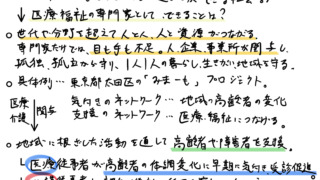 ↓医療福祉の専門家としてできることは?
○世代や分野を超えて人と人、人と資源がつながる。
専門家だけでは、目も手も不足。人、企業、事業所が関与し、
孤独、孤立から守り、1人1人の暮らし、生きがい、地域を守る。
○具体例… 東京都大田区の「みま〜も」プロジェクト。
医療 介護 関与
気付きのネットワーク… 地域の高齢者の変化
支援のネットワーク… 医療、福祉につなげる。
○地域に根ざした活動を通して高齢者や障害者を支援。
医療従事者が高齢者の体調変化に早期に気付き受診促進